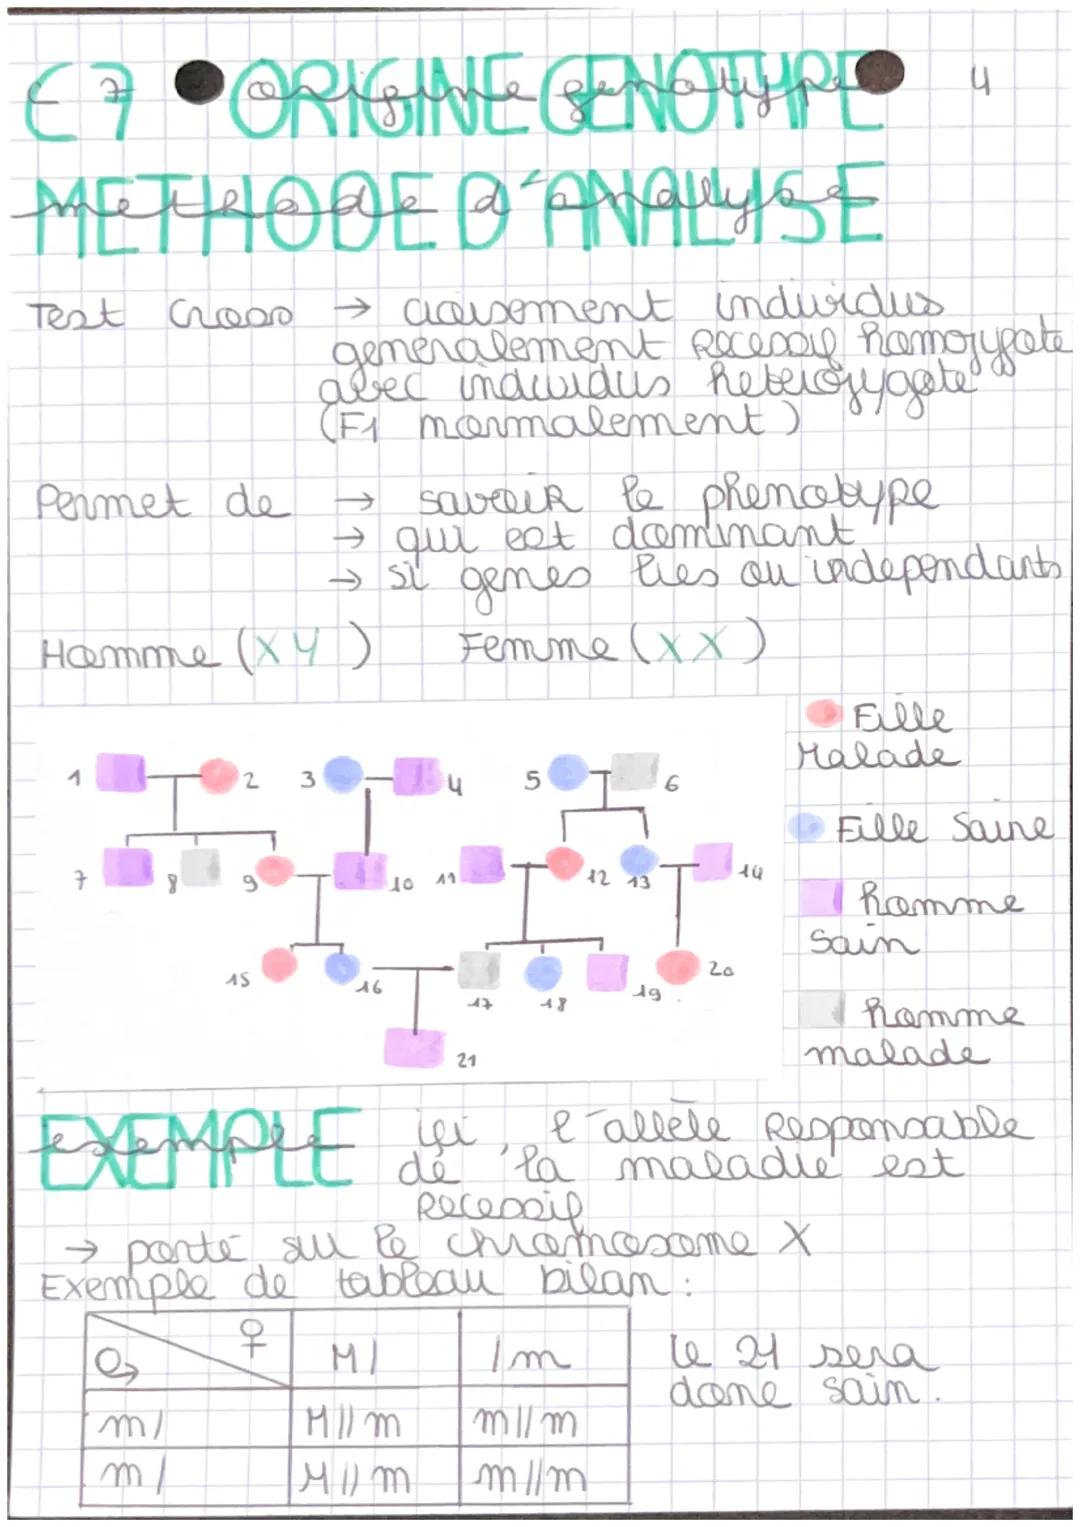 C7 ORIGINE GENOTYPE 4
origine genotype
METHODE D'ANALYSE
methode d'analyse
Test Cross → croisement individus
generalement recessif homozygote
avec individus heterozygote
(F1 normalement)
Permet de → savoir le phenotype
→ qui est dominant
→ si genes lies ou independants
Homme (XY) Femme (XX)
Fille
Malade
Fille Saine
homme
sain
homme
malade
1 2 3 4 5 6
7 8 9 10 11 12 13 14
15 16 17 18 19 20
21
EXEMPLE
exemple
ici, l'allèle Responsable
de la maladie est
Recessif
→ porté sur le chromosome X
Exemple de tableau bilan :
♀ M/ /m
♂
m/ M//m m//m
m/ M//m m//m
le 21 sera
donc sain.